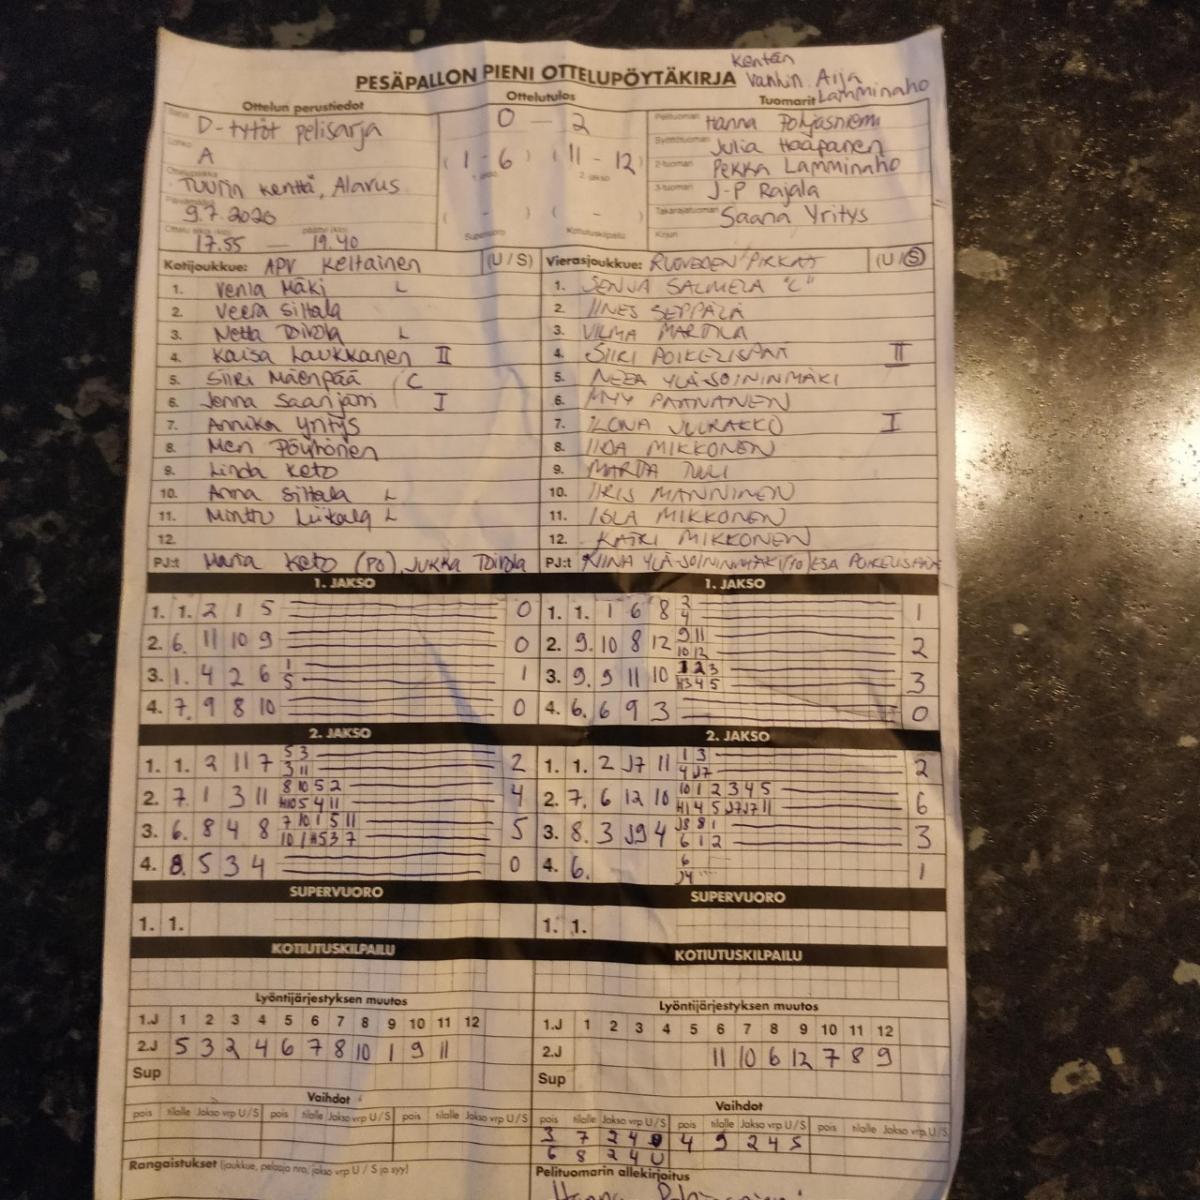 Kentän
PESÄPALLON PIENI OTTELUPÖYTÄKIRJA vanhin. Aija
Lamminaho
Ottelun perustiedot Ottelutulos Tuomarit
D-tytöt pelisarja 0 - 2 Pelituomari Hanna Pohjasniemi
A (1 - 6) (11 - 12) Julia Haapanen
1. jakso 2. jakso 2-tuomari Pekka Lamminaho
Tuurin kenttä, Alavus 3-tuomari J-P Rajala
9.7.2020 ( - ) ( - ) Takarajatuomari Saana Yritys
17.55 — 19.40 Supervuoro Kotiutuskilpailu Kirjuri
Kotijoukkue: APV Keltainen (U / S) Vierasjoukkue: RUOVEDEN PIRKAT (U/S)
1. Venla Mäki L 1. SENJA SALMELA "L"
2. Veera Siltala 2. IINES SEPPÄLÄ
3. Netta Toivola L 3. VILMA MARTTILA
4. Kaisa Laukkanen II 4. SIIRI POIKELISPÄÄ II
5. Siiri Mäenpää C 5. NEEA YLÄ-SOININMÄKI
6. Jenna Saarijärvi I 6. MYY PAANANEN
7. Annika Yritys 7. ILONA JUURAKKO I
8. Meri Pöyhönen 8. IIDA MIKKONEN
9. Linda Keto 9. MARTTA TULI
10. Anna Siltala L 10. IIRIS MANNINEN
11. Minttu Liikala L 11. ISLA MIKKONEN
12. 12. KATRI MIKKONEN
PJ:t Maria Keto (PO), JUKKA TOIVOLA PJ:t NIINA YLÄ-SOININMÄKI (PO) ESA POIKELISPÄÄ
1. JAKSO 1. JAKSO
1. 1. 2 1 5 0 1. 1. 1 6 8 1
2. 6. 11 10 9 0 2. 9. 10 8 12 9 11 10 12 2
3. 1. 4 2 6 1 5 1 3. 9. 9 11 10 1 2 3 H3 4 5 3
4. 7. 9 8 10 0 4. 6. 6 9 3 0
2. JAKSO 2. JAKSO
1. 1. 2 11 7 5 3 3 11 2 1. 1. 2 J7 11 1 3 4 J7 2
2. 7. 1 3 11 8 10 5 2 H10 5 4 11 4 2. 7. 6 12 10 10 1 2 3 4 5 H1 4 5 J7 J7 11 6
3. 6. 8 4 8 7 10 1 5 11 10 1 H5 3 7 5 3. 8. 3 J9 4 J8 8 1 6 1 2 3
4. 8. 5 3 4 0 4. 6. 6 J4 1
SUPERVUORO SUPERVUORO
1. 1. 1. 1.
KOTIUTUSKILPAILU KOTIUTUSKILPAILU
Lyöntijärjestyksen muutos Lyöntijärjestyksen muutos
1.J 1 2 3 4 5 6 7 8 9 10 11 12 1.J 1 2 3 4 5 6 7 8 9 10 11 12
2.J 5 3 2 4 6 7 8 10 1 9 11 2.J 11 10 6 12 7 8 9
Sup Sup
Vaihdot Vaihdot
pois tilalle Jakso vrp U / S pois tilalle Jakso vrp U / S pois tilalle Jakso vrp U / S pois tilalle Jakso vrp U / S pois tilalle Jakso vrp U / S pois tilalle Jakso vrp U / S
3 7 2 4 4 9 2 4 S
6 8 2 4 U
Rangaistukset (joukkue, pelaaja nro, jakso vrp U / S ja syy) Pelituomarin allekirjoitus